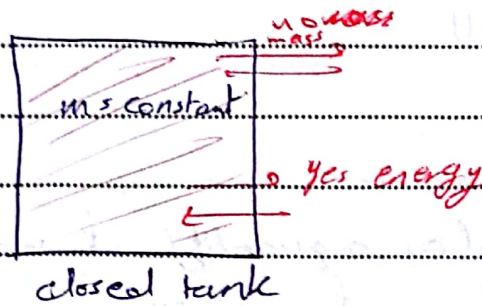 no mass
mass
m = constant
yes energy
closed tank